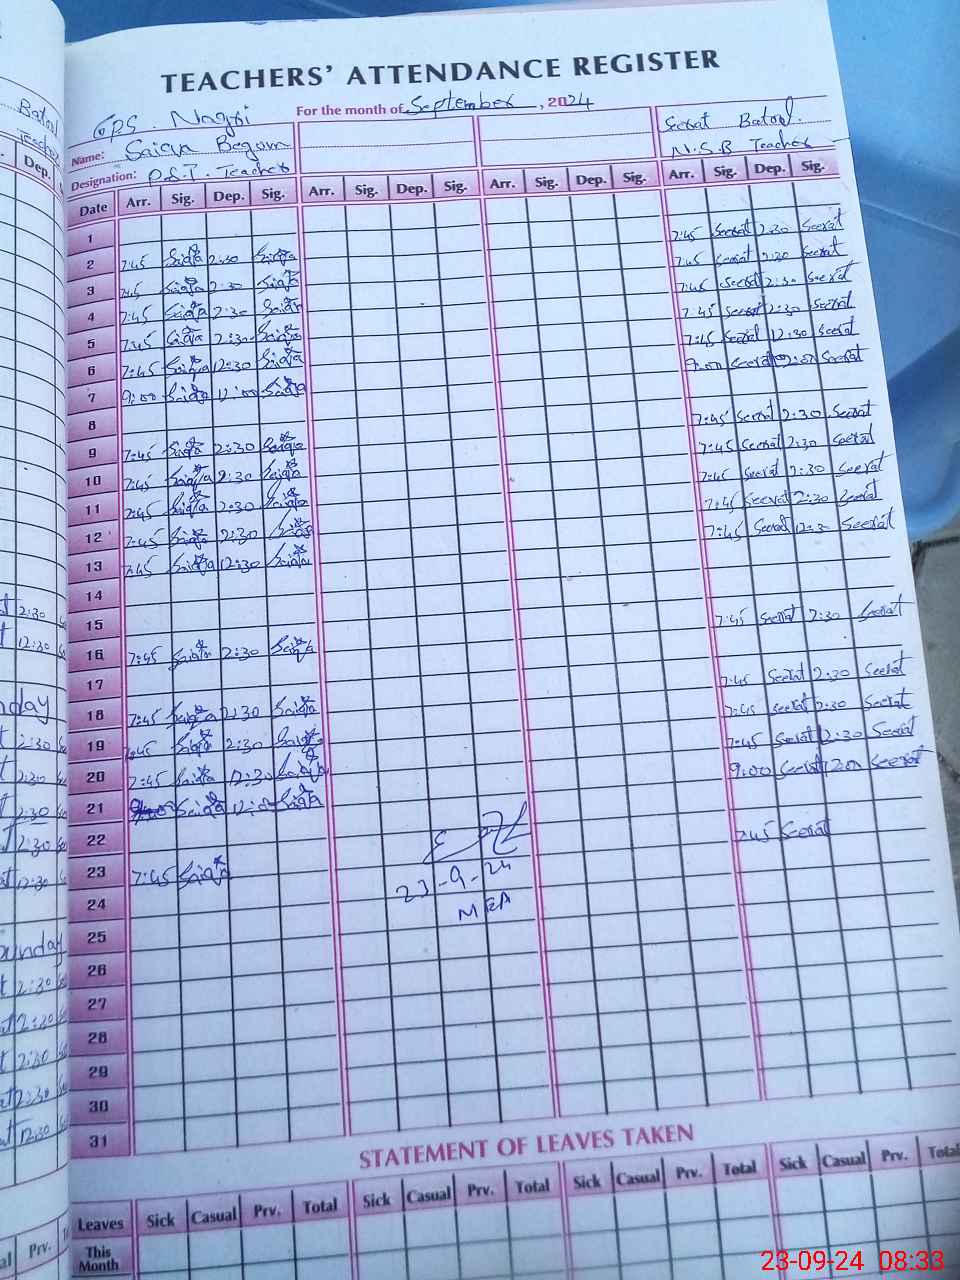 TEACHERS' ATTENDANCE REGISTER
For the month of September, 2024
GPS. Nagri
Name: Saiqa Begum
Seerat Batool.
Designation: P.S.T. Teacher
N.S.B Teacher
Date Arr. Sig. Dep. Sig. Arr. Sig. Dep. Sig. Arr. Sig. Dep. Sig. Arr. Sig. Dep. Sig.
1
2 7:45 Saiqa 2:30 Saiqa 7:45 Seerat 2:30 Seerat
3 7:45 Saiqa 2:30 Saiqa 7:45 Seerat 2:30 Seerat
4 7:45 Saiqa 2:30 Saiqa 7:45 Seerat 2:30 Seerat
5 7:45 Saiqa 2:30 Saiqa 7:45 Seerat 2:30 Seerat
6 7:45 Saiqa 12:30 Saiqa 7:45 Seerat 12:30 Seerat
7 9:00 Saiqa 12:00 Saiqa 9:00 Seerat 12:00 Seerat
8
9 7:45 Saiqa 2:30 Saiqa 7:45 Seerat 2:30 Seerat
10 7:45 Saiqa 2:30 Saiqa 7:45 Seerat 2:30 Seerat
11 7:45 Saiqa 2:30 Saiqa 7:45 Seerat 2:30 Seerat
12 7:45 Saiqa 2:30 Saiqa 7:45 Seerat 2:30 Seerat
13 7:45 Saiqa 12:30 Saiqa 7:45 Seerat 12:30 Seerat
14
15
16 7:45 Saiqa 2:30 Saiqa 7:45 Seerat 2:30 Seerat
17
18 7:45 Saiqa 2:30 Saiqa 7:45 Seerat 2:30 Seerat
19 7:45 Saiqa 2:30 Saiqa 7:45 Seerat 2:30 Seerat
20 7:45 Saiqa 12:30 Saiqa 7:45 Seerat 12:30 Seerat
21 9:00 Saiqa 12:00 Saiqa 9:00 Seerat 12:00 Seerat
22
23 7:45 Saiqa 23-9-24 7:45 Seerat
24 MEA
25
26
27
28
29
30
31
STATEMENT OF LEAVES TAKEN
Leaves Sick Casual Prv. Total Sick Casual Prv. Total Sick Casual Prv. Total Sick Casual Prv. Total
This Month
23-09-24 08:33